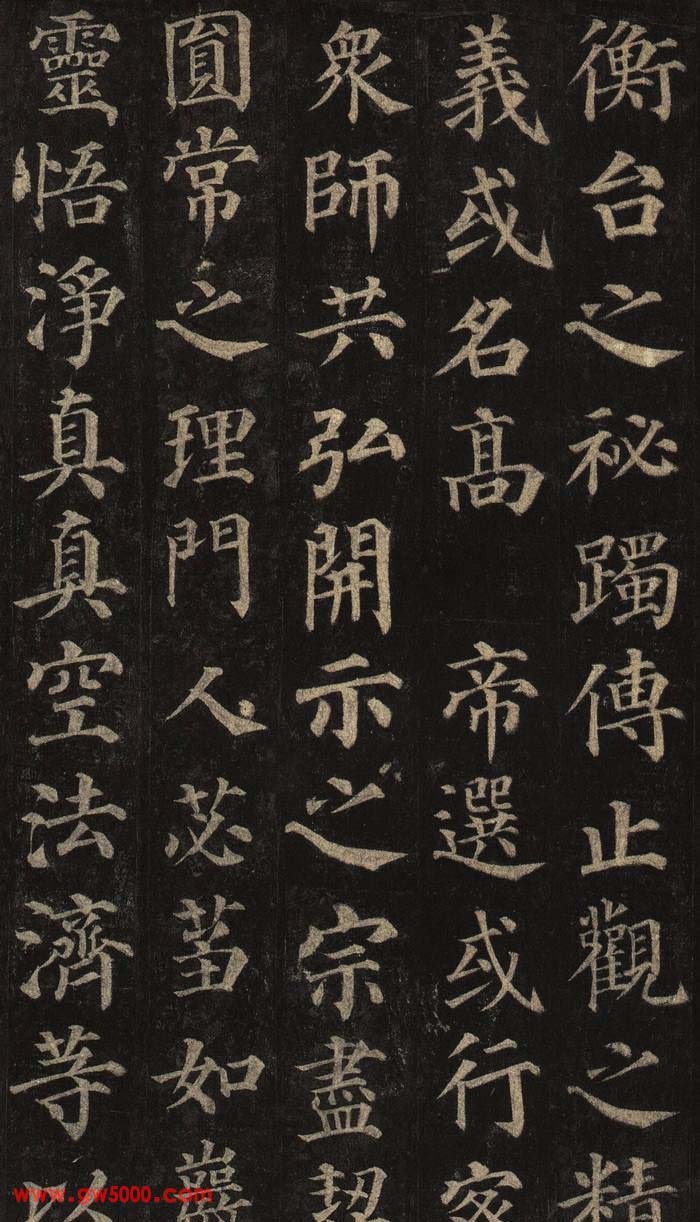 衡台之祕躅傳止觀之精
義或名高 帝選或行密
衆師共弘開示之宗盡契
圎常之理門人苾蒭如巖
靈悟淨真真空法濟等以
www.gw5000.com